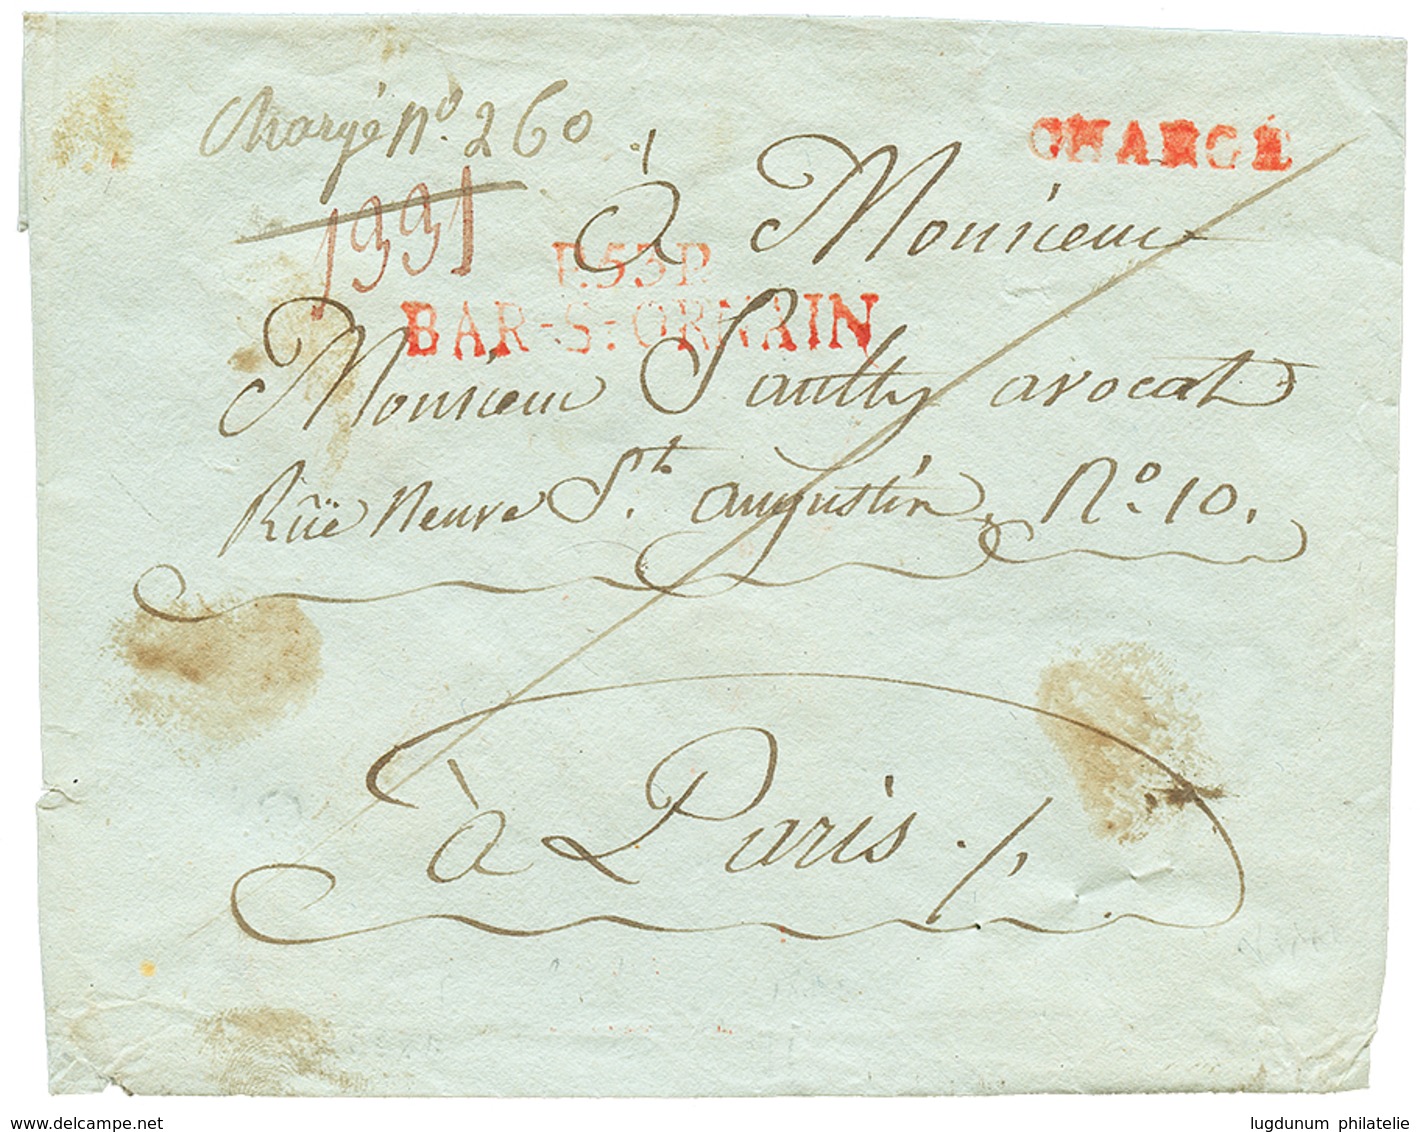 Chargé N° 260
CHARGÉ
1991
à Monsieur
P.53P.
BAR-S-ORNAIN
Monsieur Pautly avocat
Rüe neuve St. augustin, N° 10.
à Paris ./.
www.delcampe.net
lugdunum philatelie